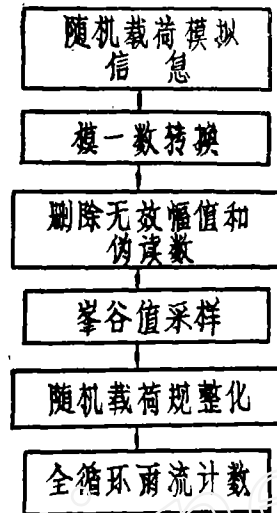 随机载荷模拟
信息
模一数转换
删除无效幅值和
伪读数
峯谷值采样
随机载荷规整化
全循环雨流计数